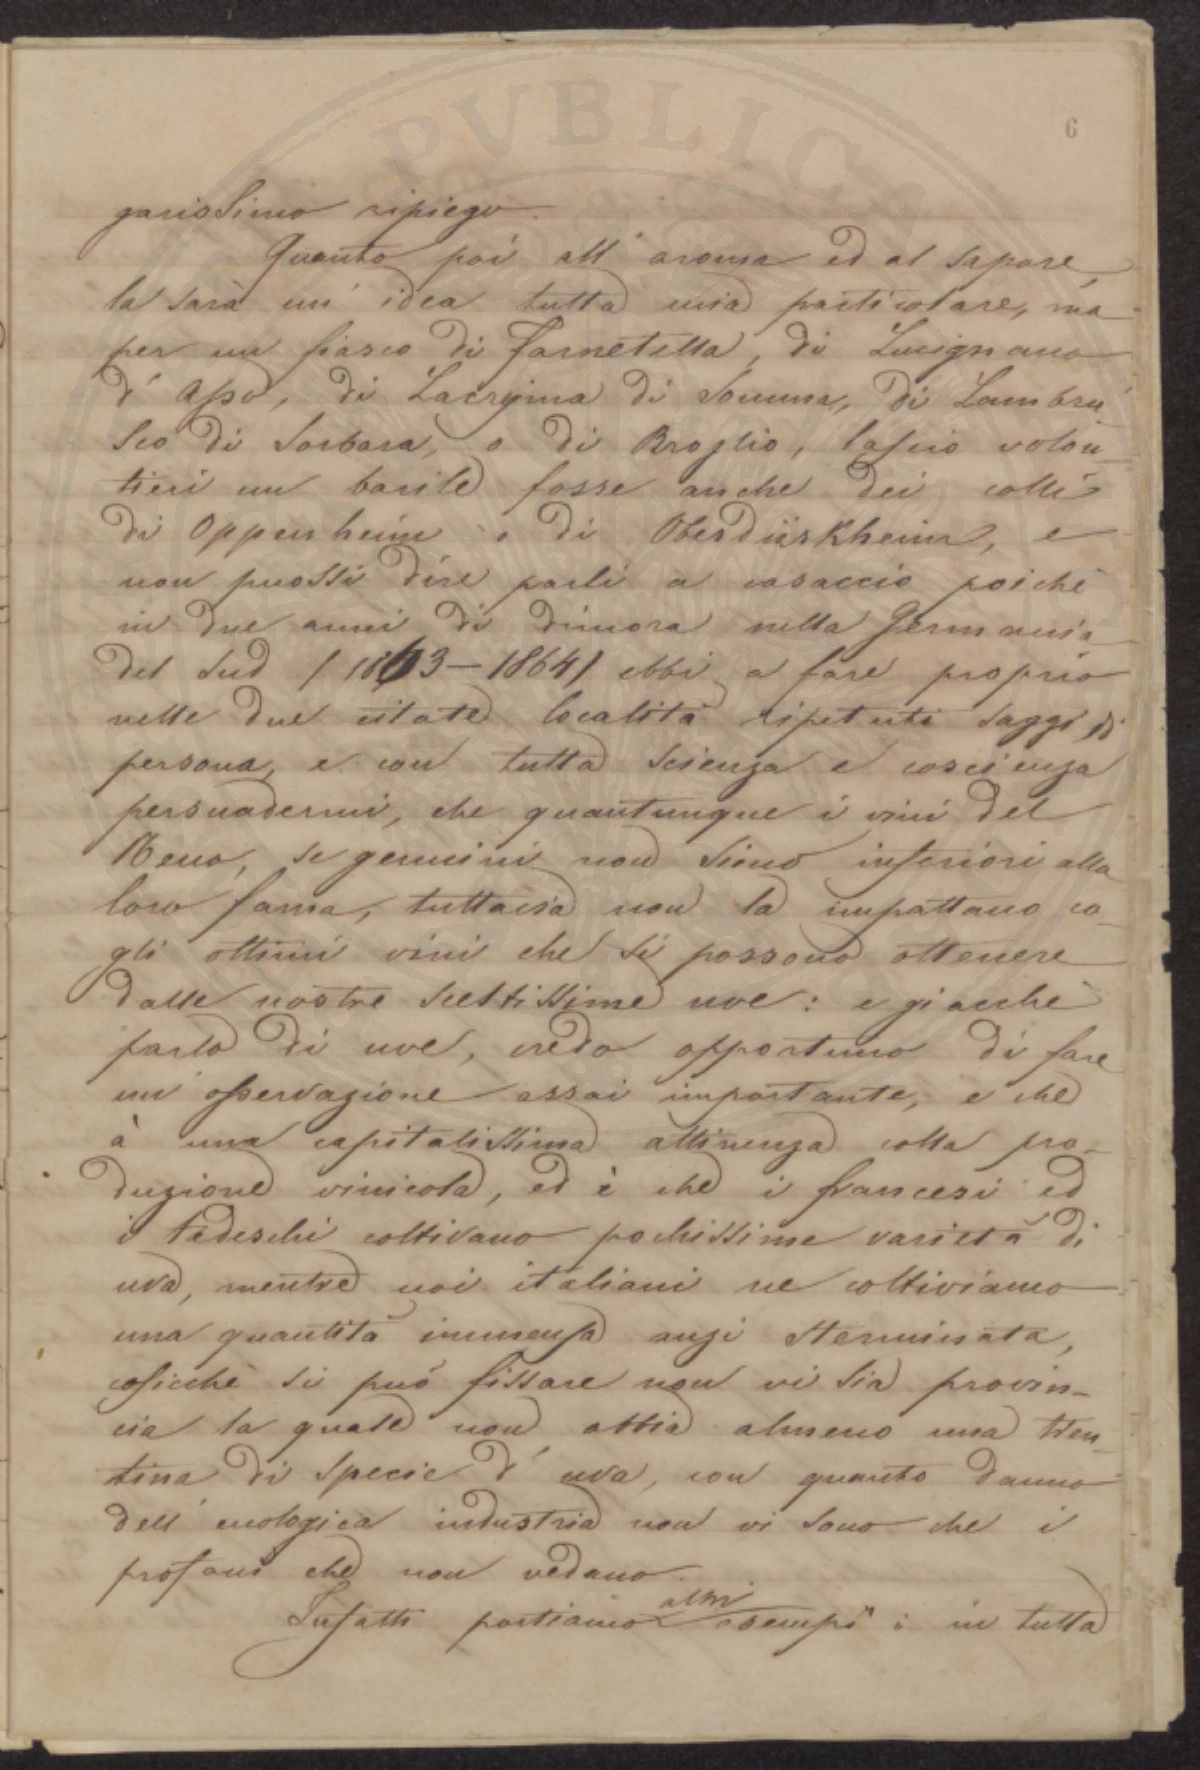 PVBLICA
6
garissimo ripiego.
Quanto poi all'aroma ed al sapore,
la sarà un'idea tutta mia particolare, ma
per un fiasco di Farnetella, di Lucignano
d'Asso, di Lacryma di Somma, di Lambru-
sco di Sorbara, o di Broglio, lascio volon-
tieri un barile fosse anche dei colli
di Oppenheim o di Oberdürkheim, e
non puossi dire parli a casaccio poichè
in due anni di dimora nella Germania
del Sud (1863-1864) ebbi a fare proprio
nelle due citate località ripetuti saggi di
persona, e con tutta scienza e coscienza
persuadermi, che quantunque i vini del
Reno, se genuini non sieno inferiori alla
loro fama, tuttavia non la impattano co-
gli ottimi vini che si possono ottenere
dalle nostre sceltissime uve: e giacchè
parlo di uve, credo opportuno di fare
un'osservazione assai importante, e che
à una capitalissima attinenza colla pro-
duzione vinicola, ed è che i francesi ed
i tedeschi coltivano pochissime varietà di
uva, mentre noi italiani ne coltiviamo
una quantità immensa anzi sterminata,
cosicchè si può fissare non vi sia provin-
cia la quale non abbia almeno una tren-
tina di specie d'uva, con quanto danno
dell'enologica industria non vi sono che i
profani che non vedano.
Infatti portiamo altri esempi: in tutta